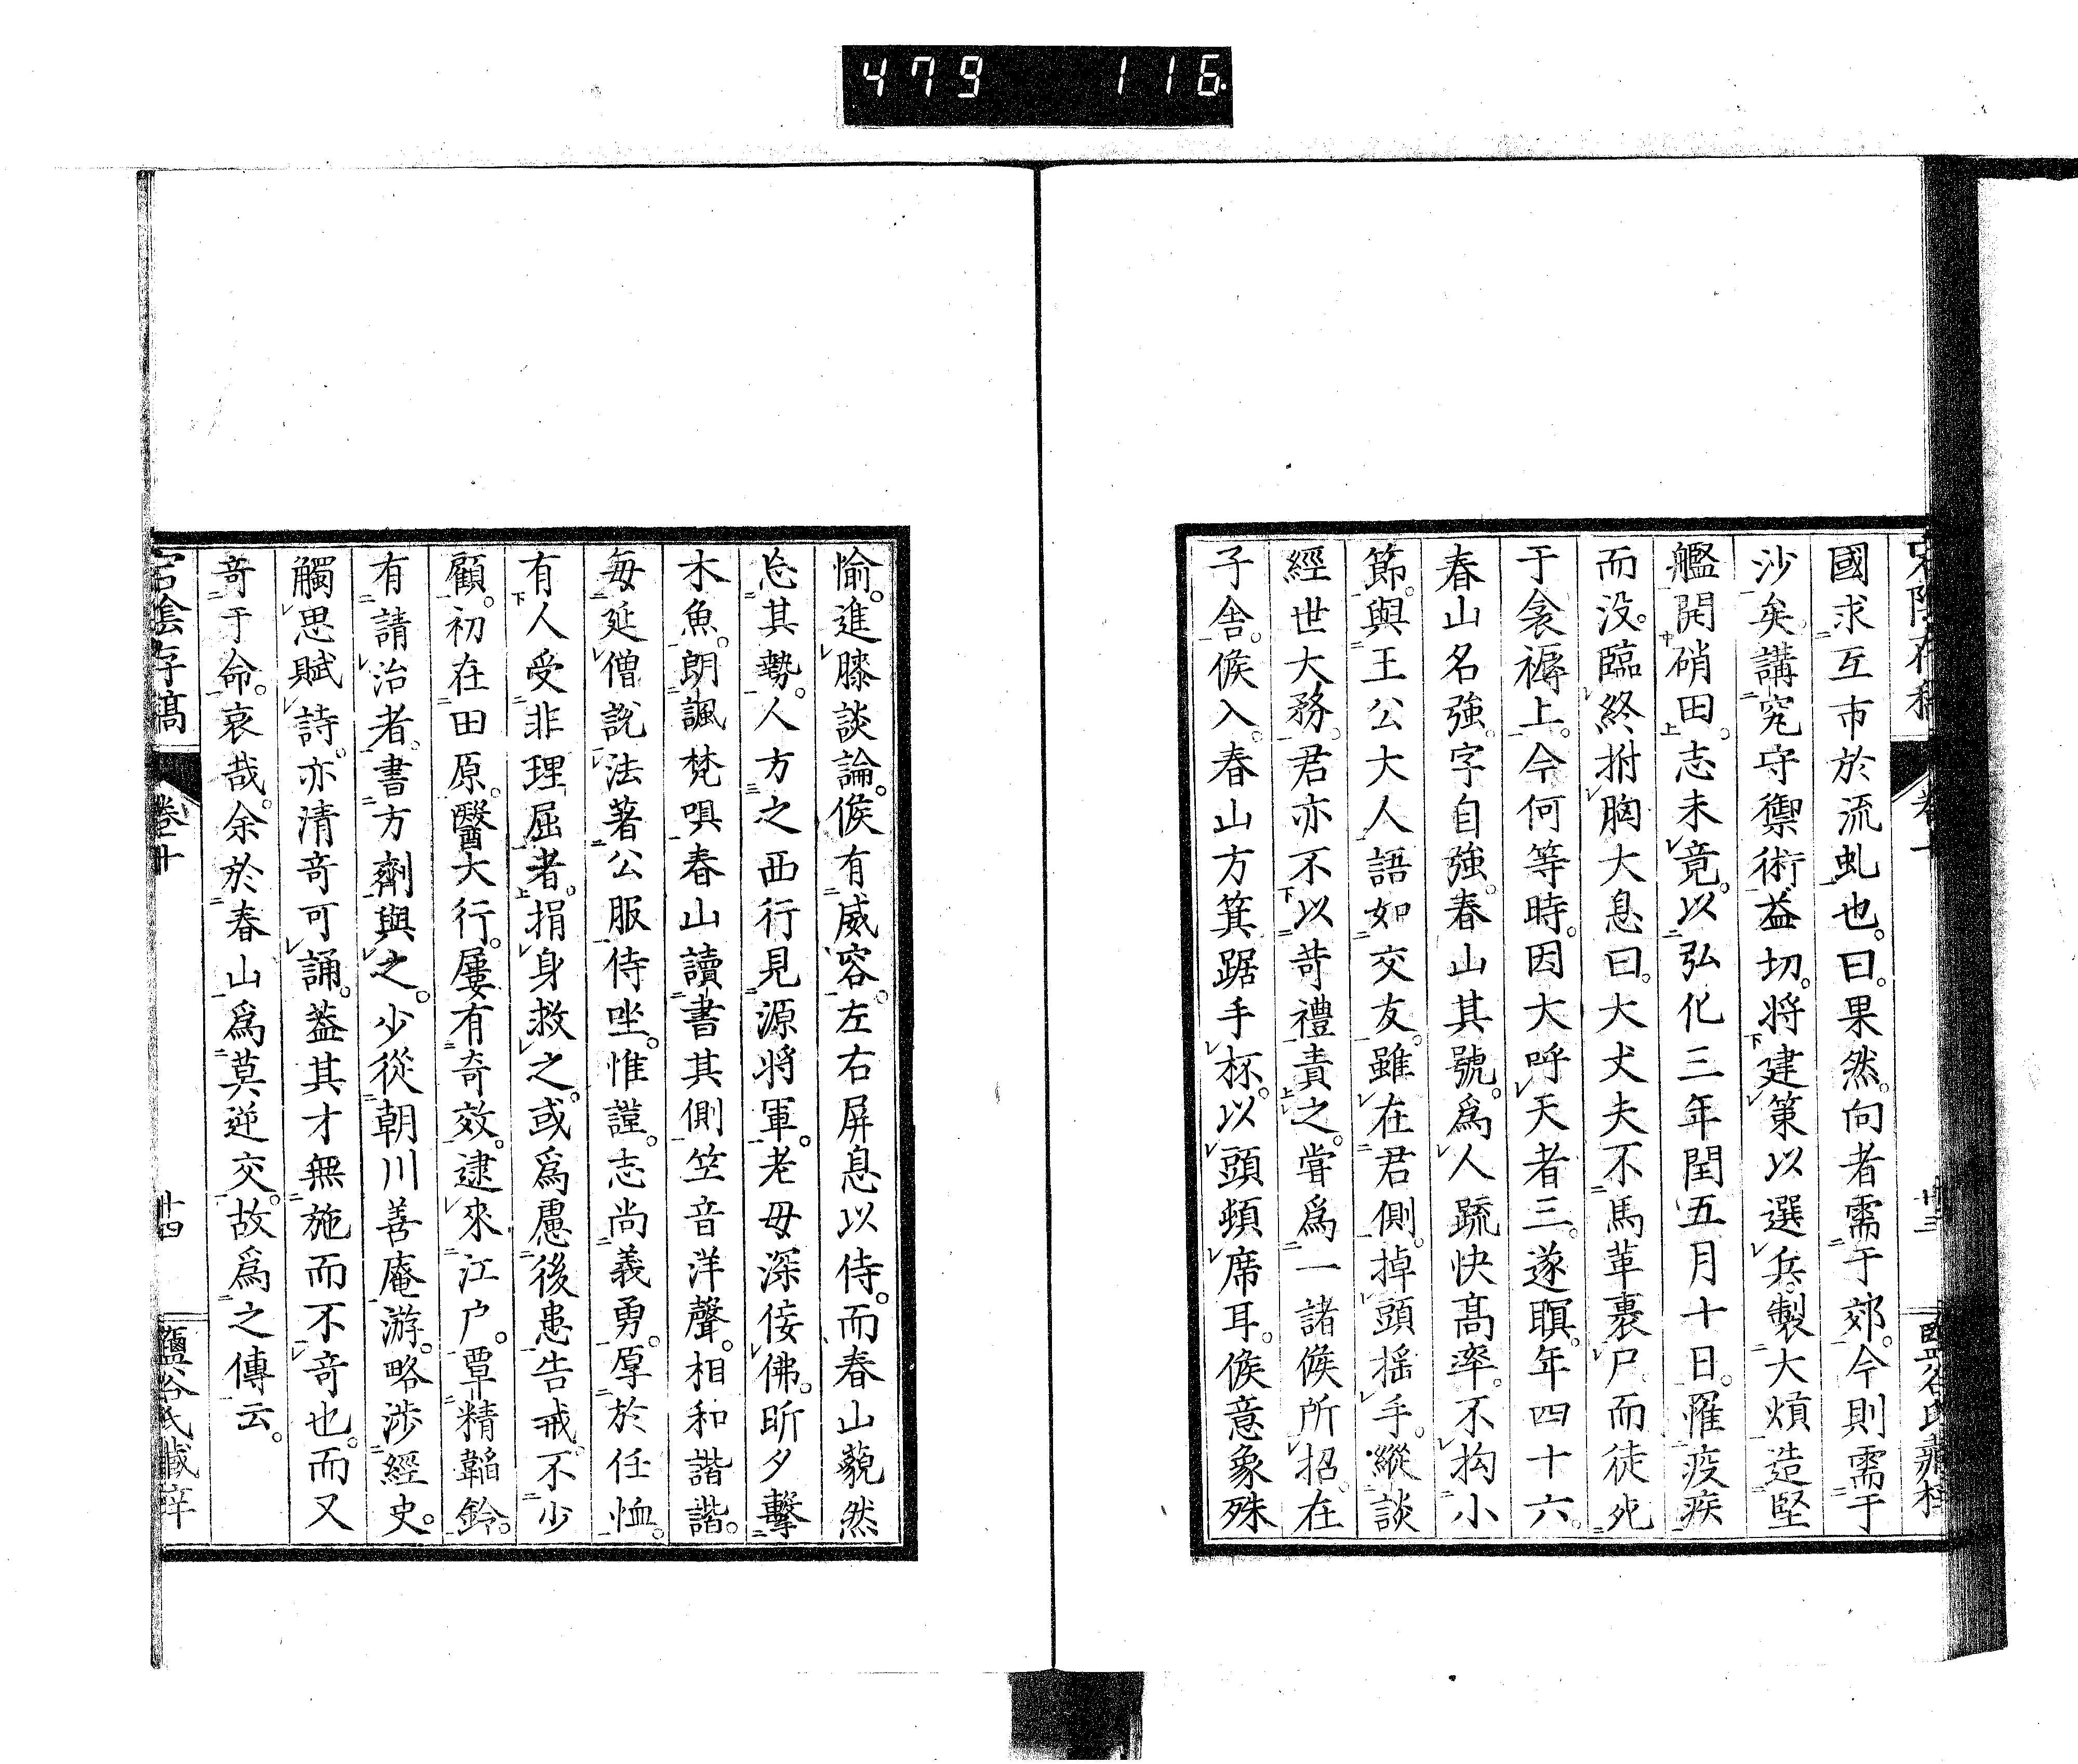 479 116
國求互市於流虬也。曰。果然。向者需于郊。今則需于
沙矣講究守禦術益切。將建策以選兵。製大熕造堅
艦開硝田。志未竟。以弘化三年閏五月十日。罹疫疾
而没。臨終拊胸大息曰。大丈夫不馬革裹尸而徒死
于衾褥上。今何等時。因大呼天者三。遂瞑。年四十六。
春山名強。字自強。春山其號。爲人疏快高率。不拘小
節。與王公大人語如交友。雖在君側。掉頭搖手。縱談
經世大務。君亦不以苛禮責之。嘗爲一諸侯所招。在
子舍。侯入。春山方箕踞手杯。以頭頫席耳。侯意象殊
愉。進膝談論。侯有威容。左右屏息以侍。而春山藐然
忘其勢。人方之西行見源將軍。老母深佞佛。昕夕擊
木魚。朗諷梵唄。春山讀書其側。竺音洋聲。相和諧諧。
每延僧說法著公服侍坐。惟謹。志尚義勇。厚於任恤。
有人受非理屈者。捐身救之。或爲慮後患告戒。不少
顧。初在田原。醫大行。屢有奇效。逮來江户。覃精韜鈐。
有請治者。書方劑與之。少從朝川善庵游。略涉經史。
觸思賦詩。亦清奇可誦。葢其才無施而不奇也。而又
奇于命。哀哉。余於春山爲莫逆交。故爲之傳云。
宕陰存稿 卷十 廿四 鹽谷氏藏梓